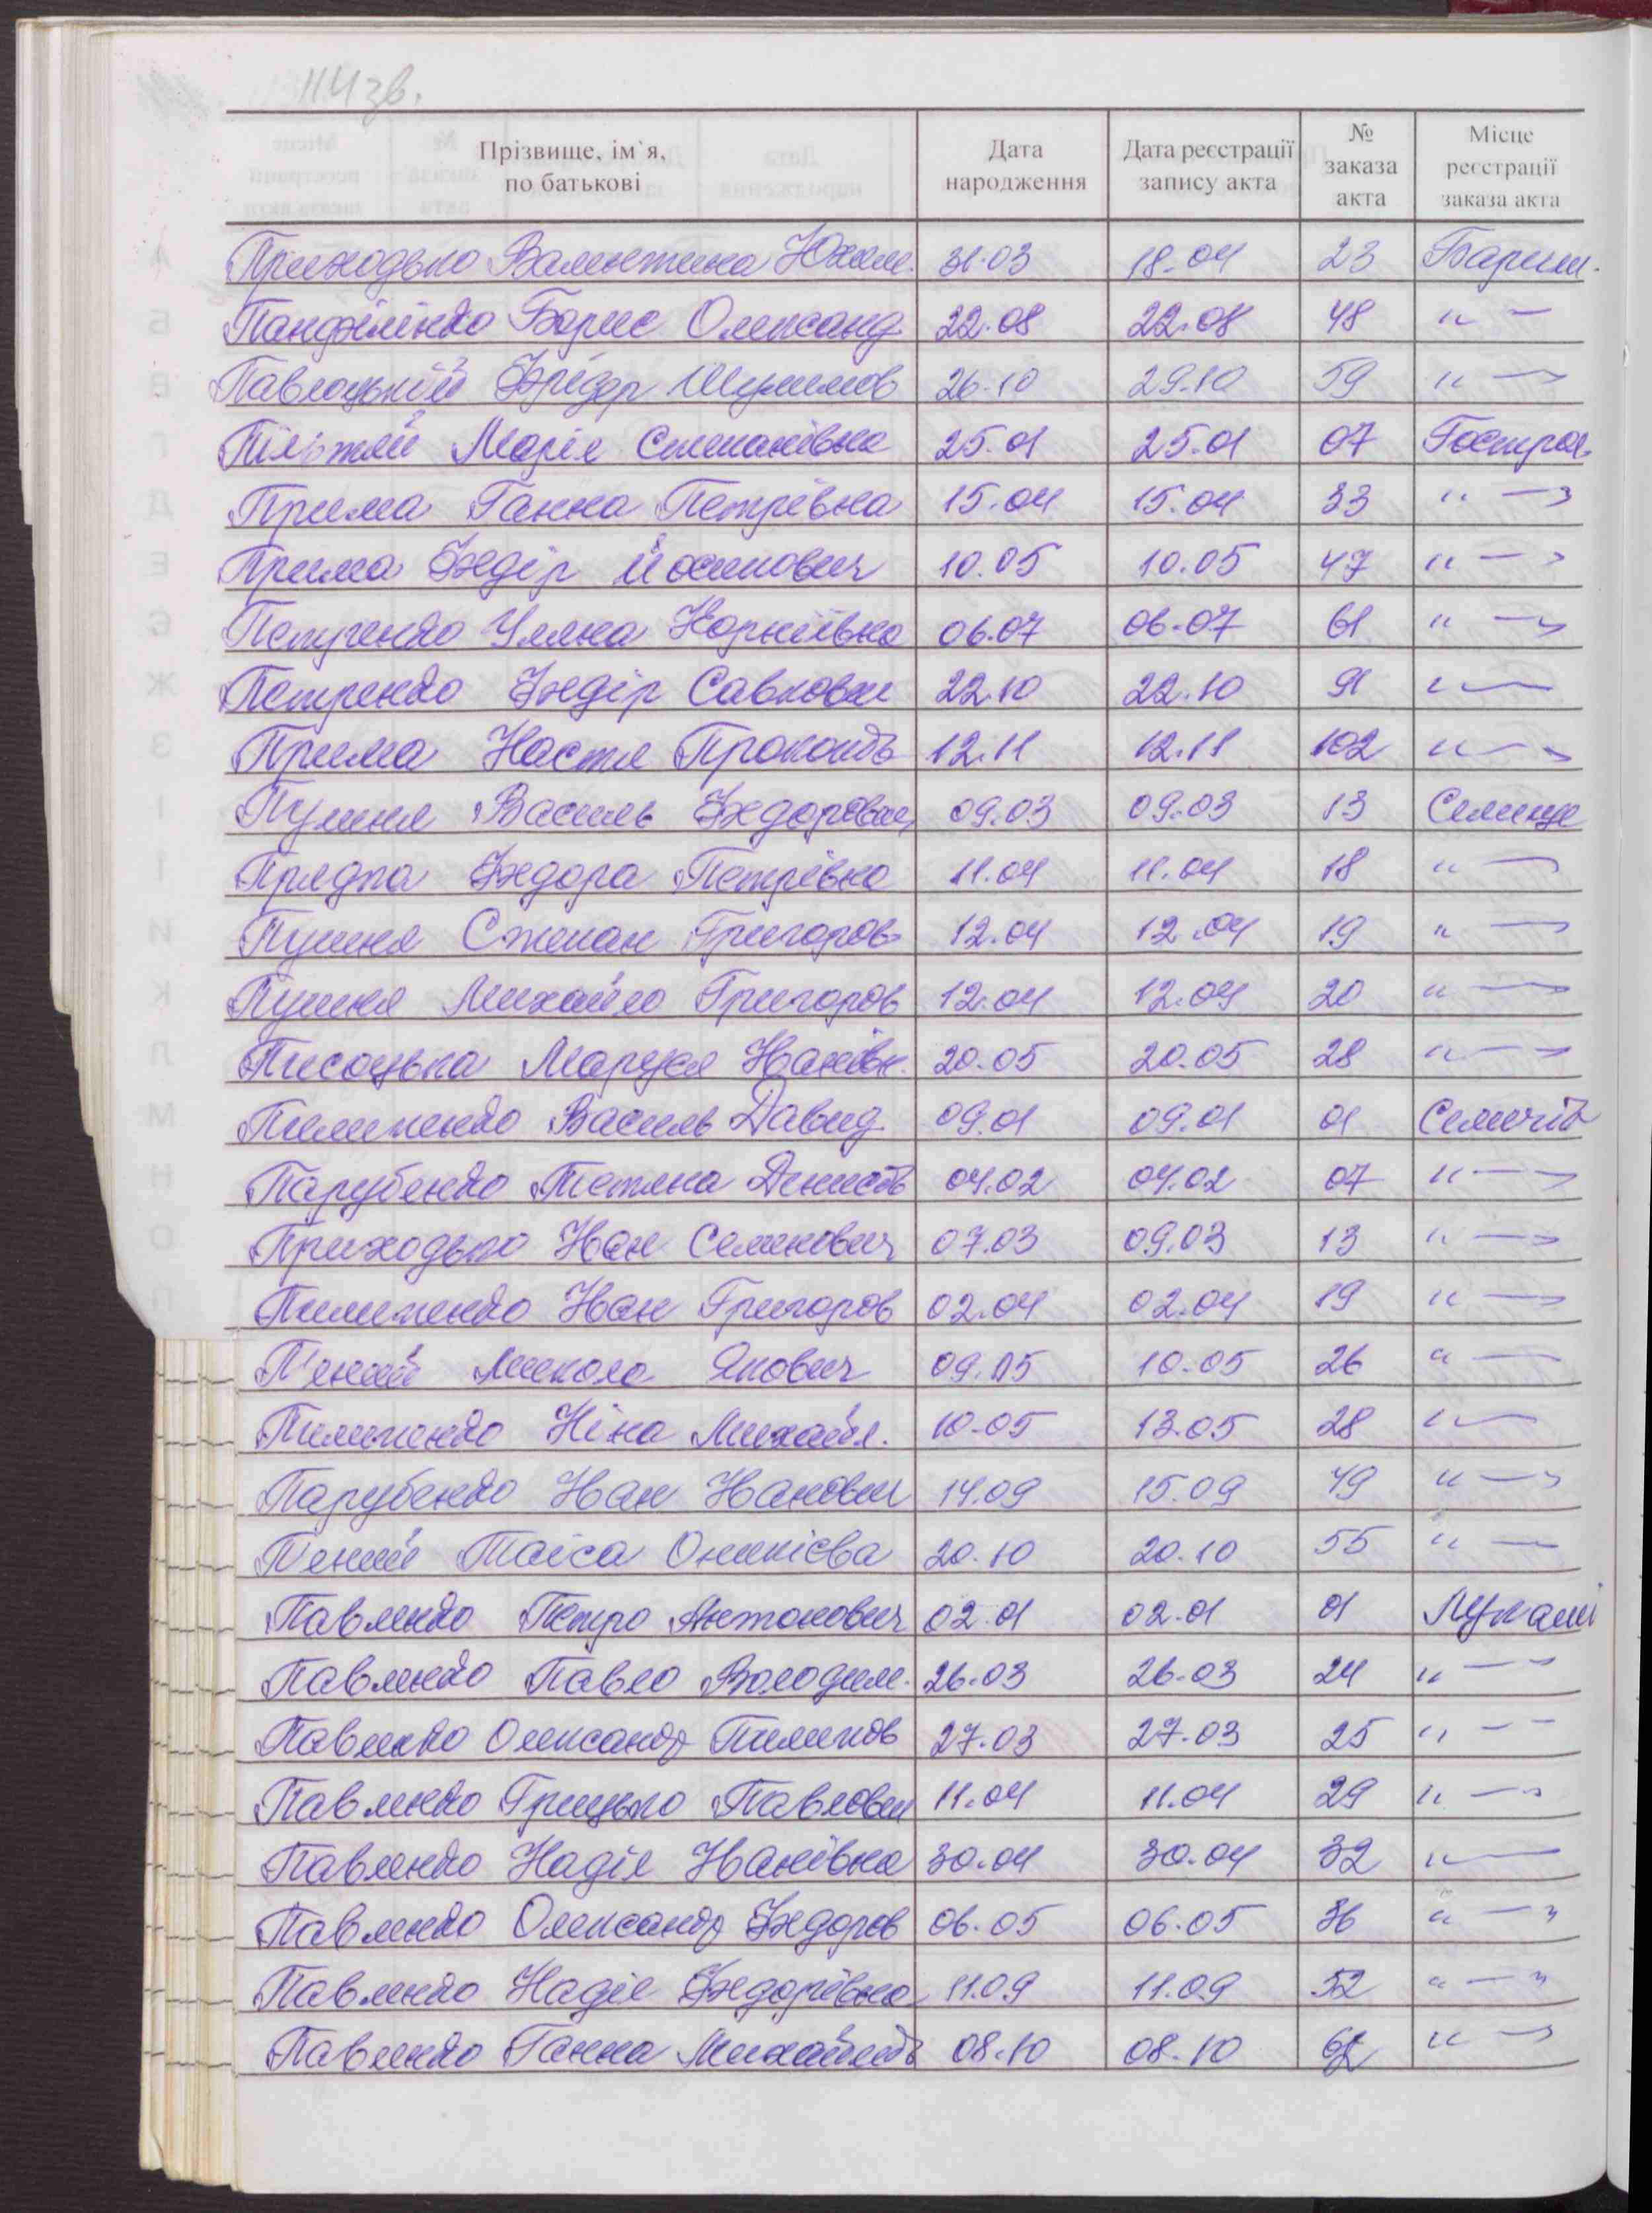 114 зв.
Прізвище, ім`я, по батькові | Дата народження | Дата реєстрації запису акта | № заказа акта | Місце реєстрації заказа акта
Приходько Валентина Юхим. 31.03 18.04 23 Бариш.
Панфіленко Борис Олександ 22.08 22.08 48 " —
Павлоцький Фрідер 26.10 29.10 59 " —
Марія Степанівна 25.01 25.01 07 Гостров
Прима Ганна Петрівна 15.04 15.04 33 " — "
Прима Федір Йосипович 10.05 10.05 47 " — "
Уляна Корніївна 06.07 06.07 61 " — "
Петренко Федір Савкович 22.10 22.10 91 " —
Прима Настя Прокопів 12.11 12.11 102 " — "
Пушня Василь Федорович 09.03 09.03 13 Селище
Прядка Федора Петрівна 11.04 11.04 18 " —
Пушня Степан Григоров 12.04 12.04 19 " —
Пушня Михайло Григоров 12.04 12.04 20 " —
Писоцька Маруся Іванівн. 20.05 20.05 28 " — "
Пилипенко Василь Давид. 09.01 09.01 01
Парубенко Тетяна Денисів 04.02 04.02 07 " — "
Приходько Іван Семенович 07.03 09.03 13 " — "
Пилипенко Іван Григоров 02.04 02.04 19 " —
П'єний Микола Якович 09.05 10.05 26 " —
Пилипенко Ніна Михайл. 10.05 13.05 28 " —
Парубенко Іван Іванович 14.09 15.09 49 " — "
П'єний Таїса Оникієва 20.10 20.10 55 " —
Павленко Петро Антонович 02.01 02.01 01 Лукаші
Павленко Павло Володим. 26.03 26.03 24 " — "
Павленко Олександр Пилипов 27.03 27.03 25 " — –
Павленко Грицько Павлович 11.04 11.04 29 " — "
Павленко Надія Іванівна 30.04 30.04 32 " —
Павленко Олександр Федоров 06.05 06.05 36 " — "
Павленко Надія Федорівна 11.09 11.09 52 " — "
Павленко Ганна Михайлів 08.10 08.10 " — "